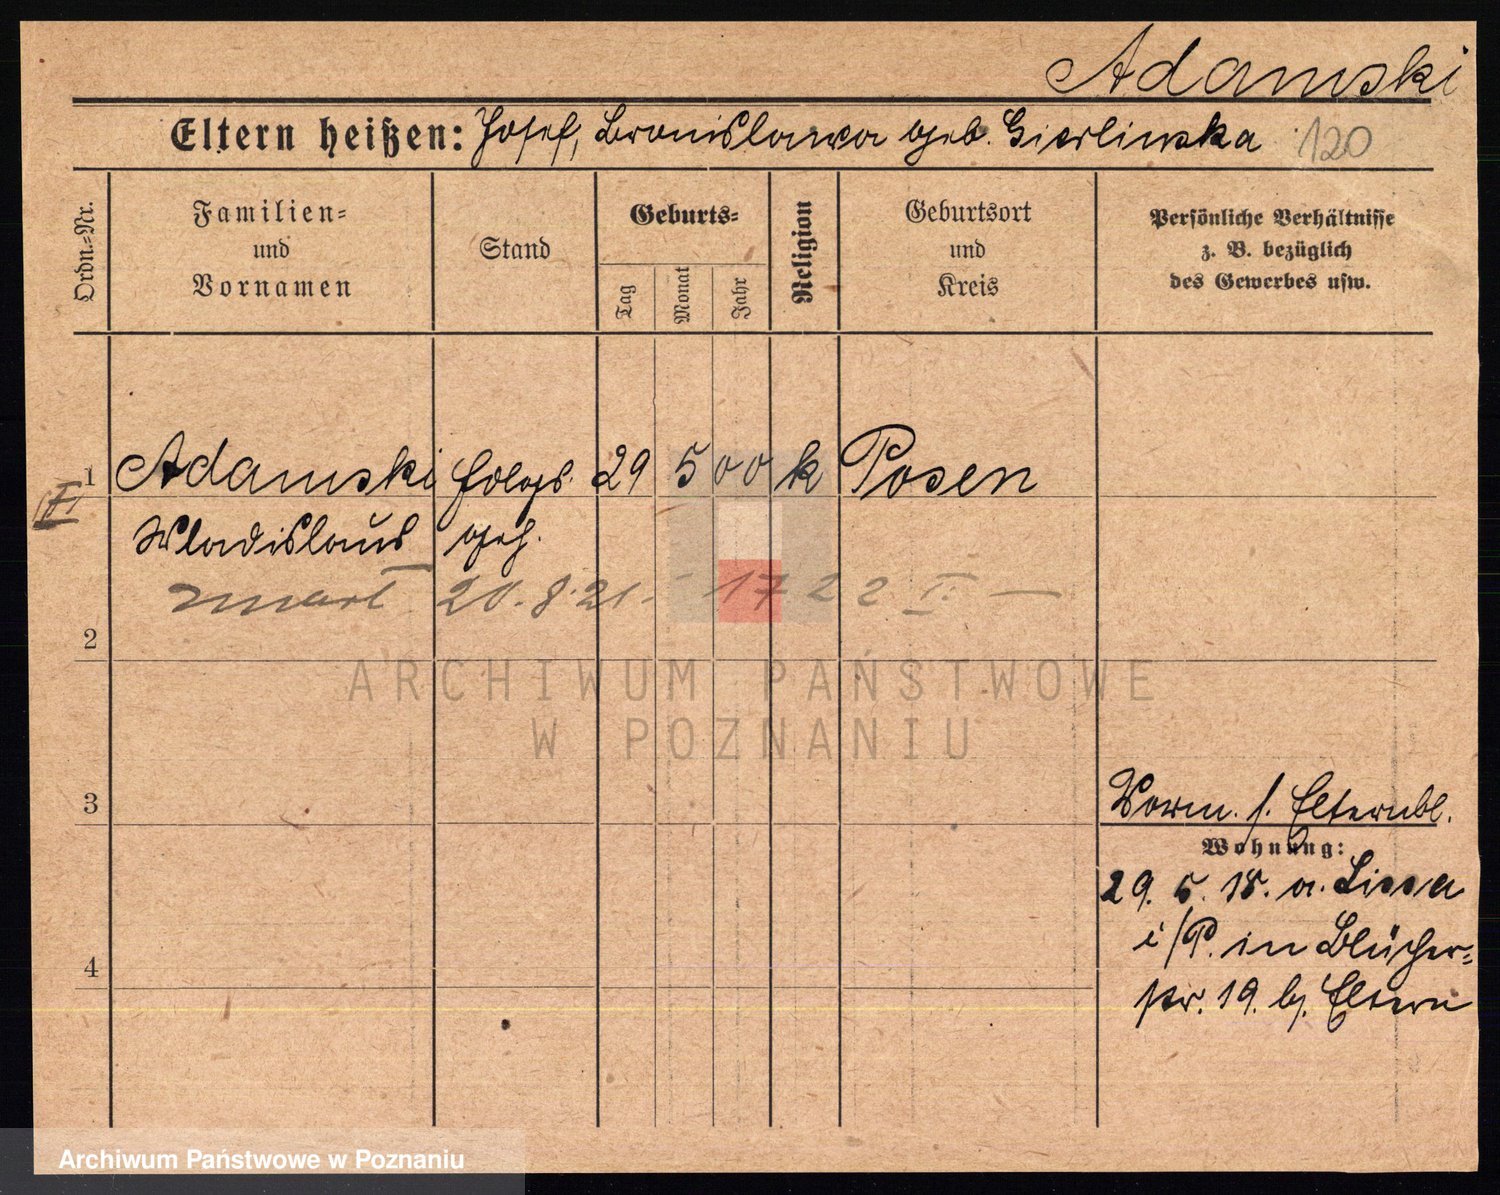 Adamski
Eltern heißen: Josef, Bronislawa geb. Gierlinska 120
Ordn.=Nr.
Familien=
und
Vornamen
Stand
Geburts=
Tag
Monat
Jahr
Religion
Geburtsort
und
Kreis
Persönliche Verhältnisse
z. B. bezüglich
des Gewerbes usw.
1 Adamski 29 5 00 k Posen
Wladislaus geh.
zmarł 20.8.21. - 1722 I. —
2
ARCHIWUM PAŃSTWOWE
W POZNANIU
3
Vorm. s. Elternbl.
Wohnung:
29. 5. 18. a. Lissa
i/P. in Blücher=
4
str. 19. b. Eltern
Archiwum Państwowe w Poznaniu